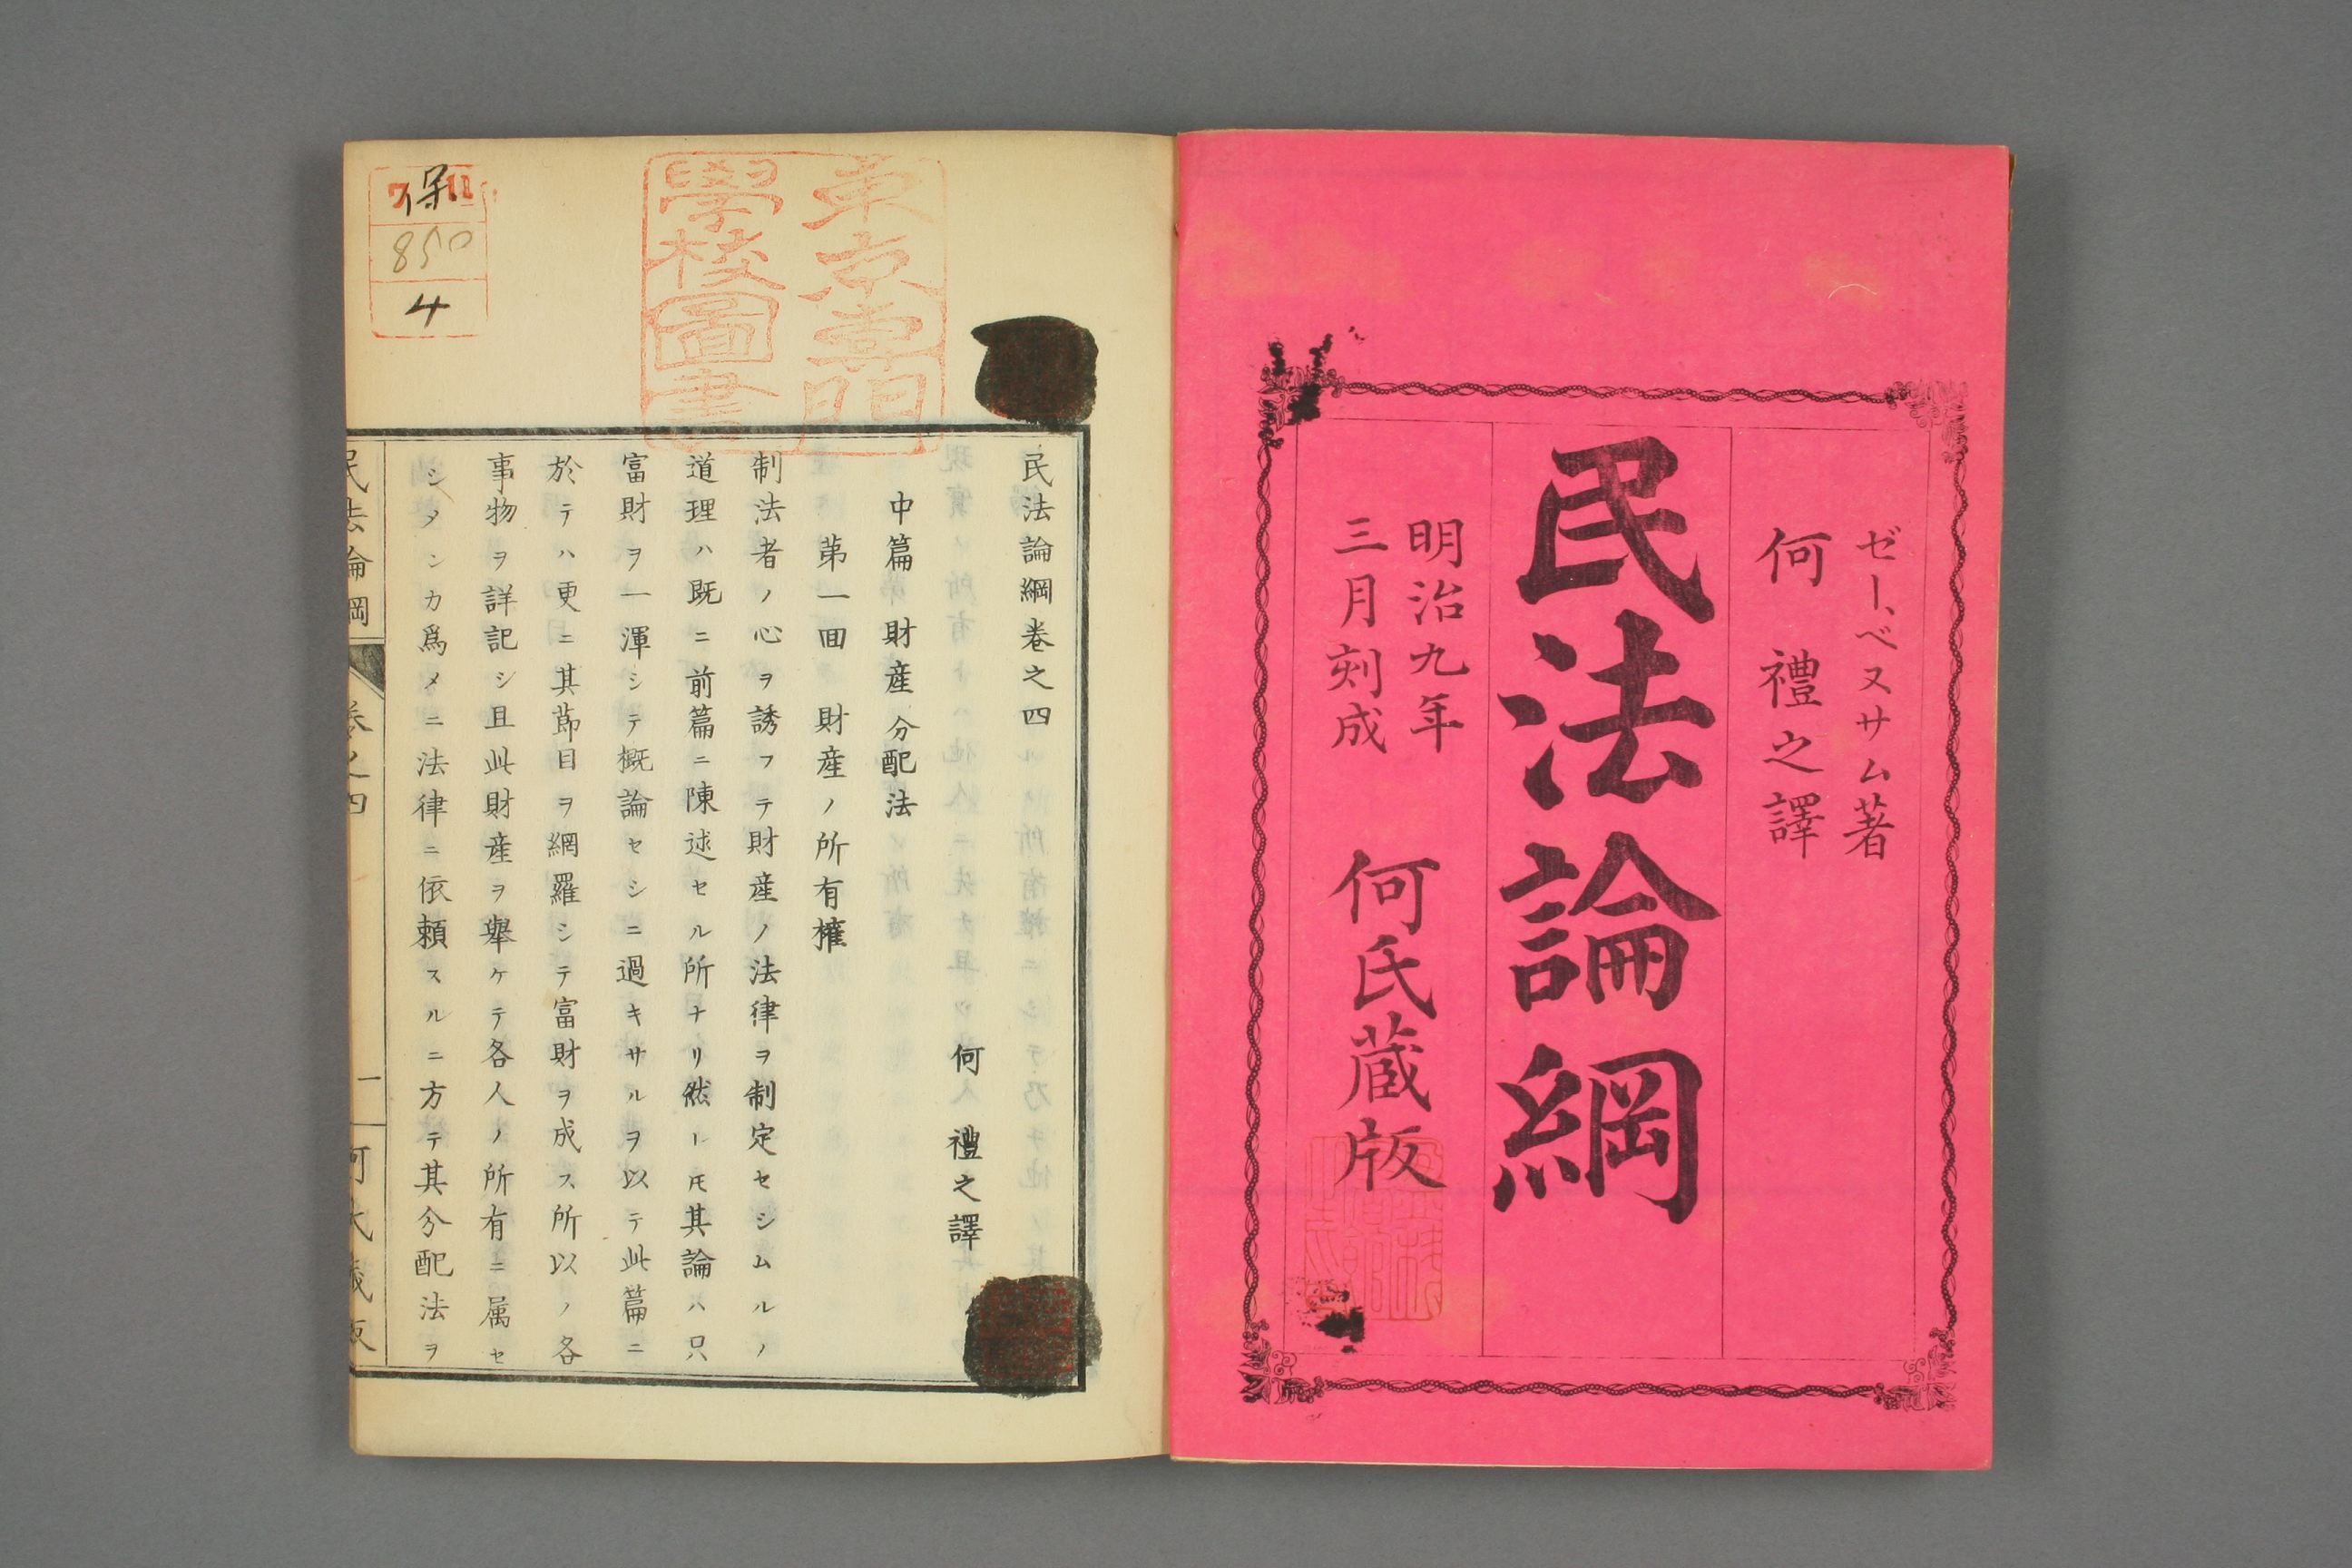 ゼー、ベヌサム著
何禮之譯
民法論綱
明治九年
三月刻成
何氏蔵版
東京專門
學校圖書
保
850
4
民法論綱巻之四
何禮之譯
中篇 財産分配法
第一回 財産ノ所有權
制法者ノ心ヲ誘フテ財産ノ法律ヲ制定セシムルノ
道理ハ既ニ前篇ニ陳述セル所ナリ然レトモ其論ハ只
富財ヲ一渾シテ概論セシニ過キサルヲ以テ此篇ニ
於テハ更ニ其節目ヲ網羅シテ富財ヲ成ス所以ノ各
事物ヲ詳記シ且此財産ヲ舉ケテ各人ノ所有ニ属セ
シメンカ爲メニ法律ニ依頼スルニ方テ其分配法ヲ
民法論綱
巻之四
一
何氏蔵版